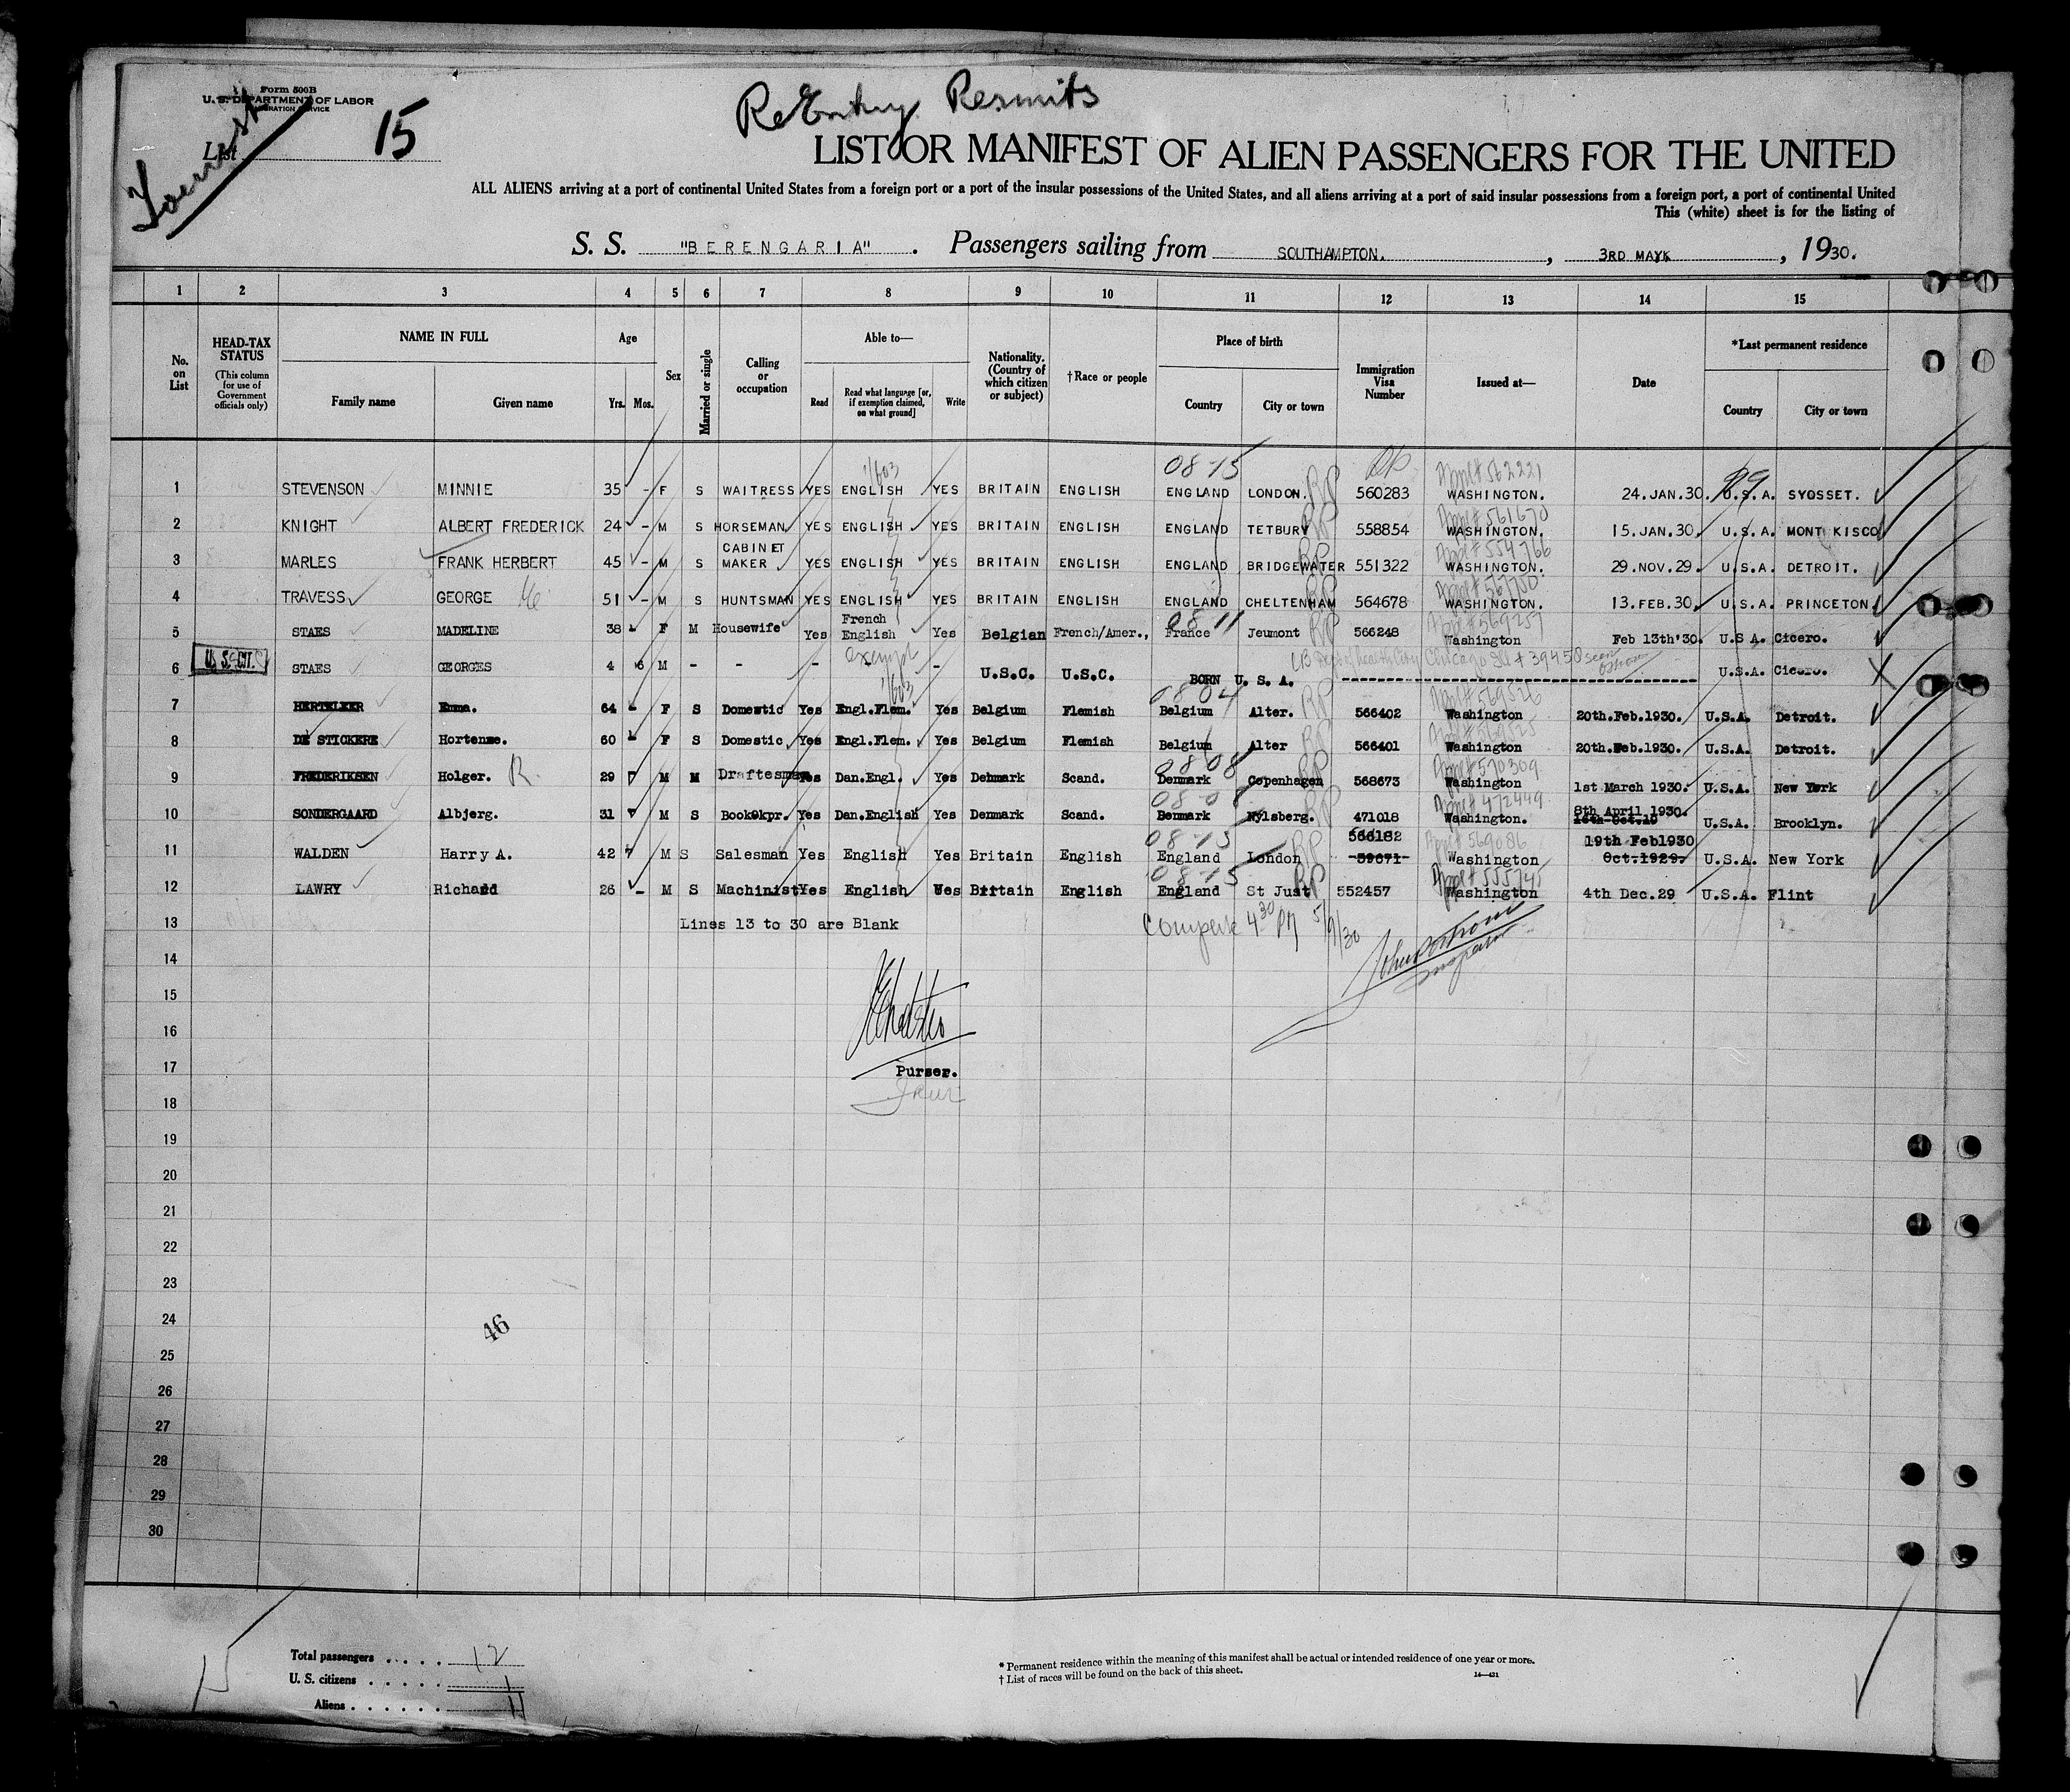 Form 500B
U. S. DEPARTMENT OF LABOR
IMMIGRATION SERVICE
List 15
ReEntry Permits
LIST OR MANIFEST OF ALIEN PASSENGERS FOR THE UNITED
ALL ALIENS arriving at a port of continental United States from a foreign port or a port of the insular possessions of the United States, and all aliens arriving at a port of said insular possessions from a foreign port, a port of continental United
This (white) sheet is for the listing of
S. S. "BERENGARIA". Passengers sailing from SOUTHAMPTON. , 3RD MAY , 1930.
1 2 3 4 5 6 7 8 9 10 11 12 13 14 15
No. on List
HEAD-TAX STATUS (This column for use of Government officials only)
NAME IN FULL
Family name Given name
Age
Yrs. Mos.
Sex
Married or single
Calling or occupation
Able to—
Read Read what language [or, if exemption claimed, on what ground] Write
Nationality. (Country of which citizen or subject)
†Race or people
Place of birth
Country City or town
Immigration Visa Number
Issued at—
Date
*Last permanent residence
Country City or town
1/603 08-15 Appl# 562221 99
1 STEVENSON MINNIE 35 - F S WAITRESS YES ENGLISH YES BRITAIN ENGLISH ENGLAND LONDON. RP 560283 WASHINGTON. 24.JAN.30. U.S.A. SYOSSET.
Appl# 561670
2 KNIGHT ALBERT FREDERICK 24 - M S HORSEMAN YES ENGLISH YES BRITAIN ENGLISH ENGLAND TETBURY RP 558854 WASHINGTON. 15.JAN.30. U.S.A. MONT KISCO
Appl# 554766
3 MARLES FRANK HERBERT 45 - M S CABINET MAKER YES ENGLISH YES BRITAIN ENGLISH ENGLAND BRIDGEWATER RP 551322 WASHINGTON. 29.NOV.29. U.S.A. DETROIT.
4 TRAVESS GEORGE 51 - M S HUNTSMAN YES ENGLISH YES BRITAIN ENGLISH ENGLAND CHELTENHAM RP 564678 WASHINGTON. 13.FEB.30. U.S.A. PRINCETON.
08 11 Appl# 569257
5 STAES MADELINE 38 - F M Housewife Yes French English Yes Belgian French/Amer., France Jeumont RP 566248 Washington Feb 13th'30. U.S A. Cicero.
U.S. CIT.
exempt
6 STAES GEORGES 4 6 M - - - - - U.S.C. U.S.C. BORN U. S. A. U.S.A. Cicero.
1/603 0804 Appl# 569526
7 HERTELEER Emma. 64 - F S Domestic Yes Engl.Flem. Yes Belgium Flemish Belgium Alter. RP 566402 Washington 20th.Feb.1930. U.S.A. Detroit.
Appl# 569525
8 DE STICKERE Hortense. 60 F S Domestic Yes Engl.Flem. Yes Belgium Flemish Belgium Alter RP 566401 Washington 20th.Feb.1930. U.S.A. Detroit.
0808 Appl# 570309
9 FREDERIKSEN Holger. R. 29 M M Draftesman Yes Dan.Engl. Yes Denmark Scand. Denmark Copenhagen RP 568673 Washington 1st March 1930. U.S.A. New York
Appl# 472449
10 SONDERGAARD Albjerg. 31 M S Bookkpr. Yes Dan.English Yes Denmark Scand. Denmark Nylsberg. RP 471018 Washington. 8th April 1930. U.S.A. Brooklyn.
08-15 Appl# 569086
11 WALDEN Harry A. 42 M S Salesman Yes English Yes Britain English England London RP 566182 -59671- Washington 19th Feb1930 Oct.1929. U.S.A. New York
08-15 Appl# 555745
12 LAWRY Richard 26 - M S Machinist Yes English Yes Britain English England St Just RP 552457 Washington 4th Dec.29 U.S.A. Flint
13 Lines 13 to 30 are Blank
4 30 PM 5/9/30
Inspector
14
15
16
17 Purser.
18
19
20
21
22
23
24
46
25
26
27
28
29
30
Total passengers . . . . . 12
U. S. citizens . . . . . . 1
Aliens . . . . . . 11
* Permanent residence within the meaning of this manifest shall be actual or intended residence of one year or more.
† List of races will be found on the back of this sheet.
14—431